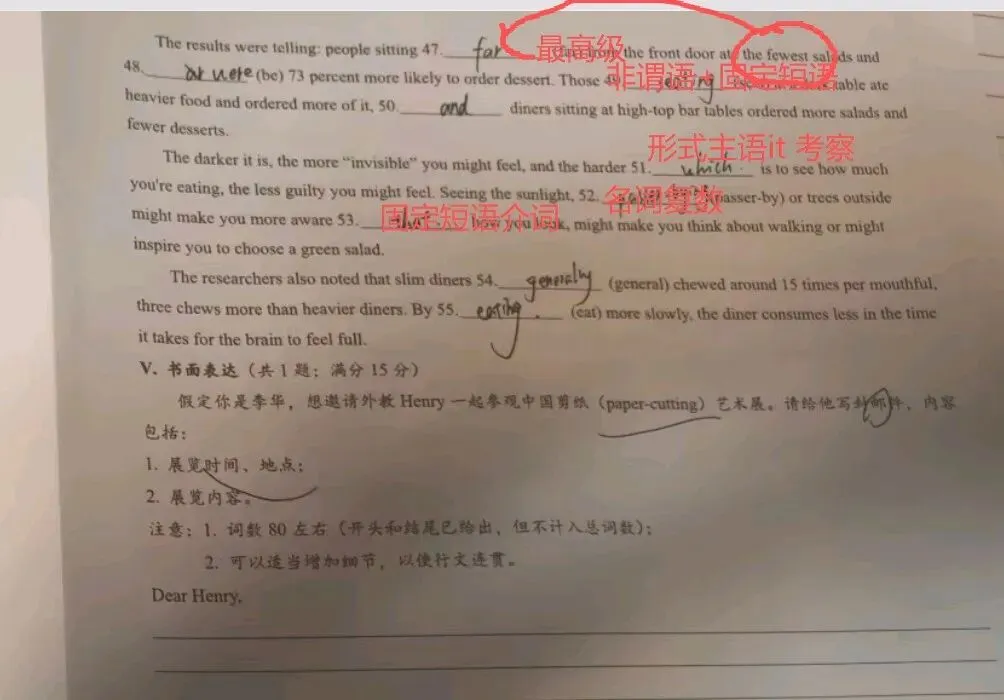 The results were telling: people sitting 47. far from the front door ate the fewest salads and
最高级
48. were (be) 73 percent more likely to order dessert. Those eating table ate
非谓语 + 固定短语
heavier food and ordered more of it, 50. and diners sitting at high-top bar tables ordered more salads and
fewer desserts.
形式主语it 考察
The darker it is, the more “invisible” you might feel, and the harder 51. which is to see how much
you're eating, the less guilty you might feel. Seeing the sunlight, 52. (passer-by) or trees outside
名词复数
might make you more aware 53. how you look, might make you think about walking or might
固定短语介词
inspire you to choose a green salad.
The researchers also noted that slim diners 54. generally (general) chewed around 15 times per mouthful,
three chews more than heavier diners. By 55. eating (eat) more slowly, the diner consumes less in the time
it takes for the brain to feel full.
V. 书面表达（共 1 题；满分 15 分）
假定你是李华，想邀请外教 Henry 一起参观中国剪纸（paper-cutting）艺术展。请给他写封邮件，内容
包括：
1. 展览时间、地点；
2. 展览内容。
注意：1. 词数 80 左右（开头和结尾已给出，但不计入总词数）；
2. 可以适当增加细节，以使行文连贯。
Dear Henry,